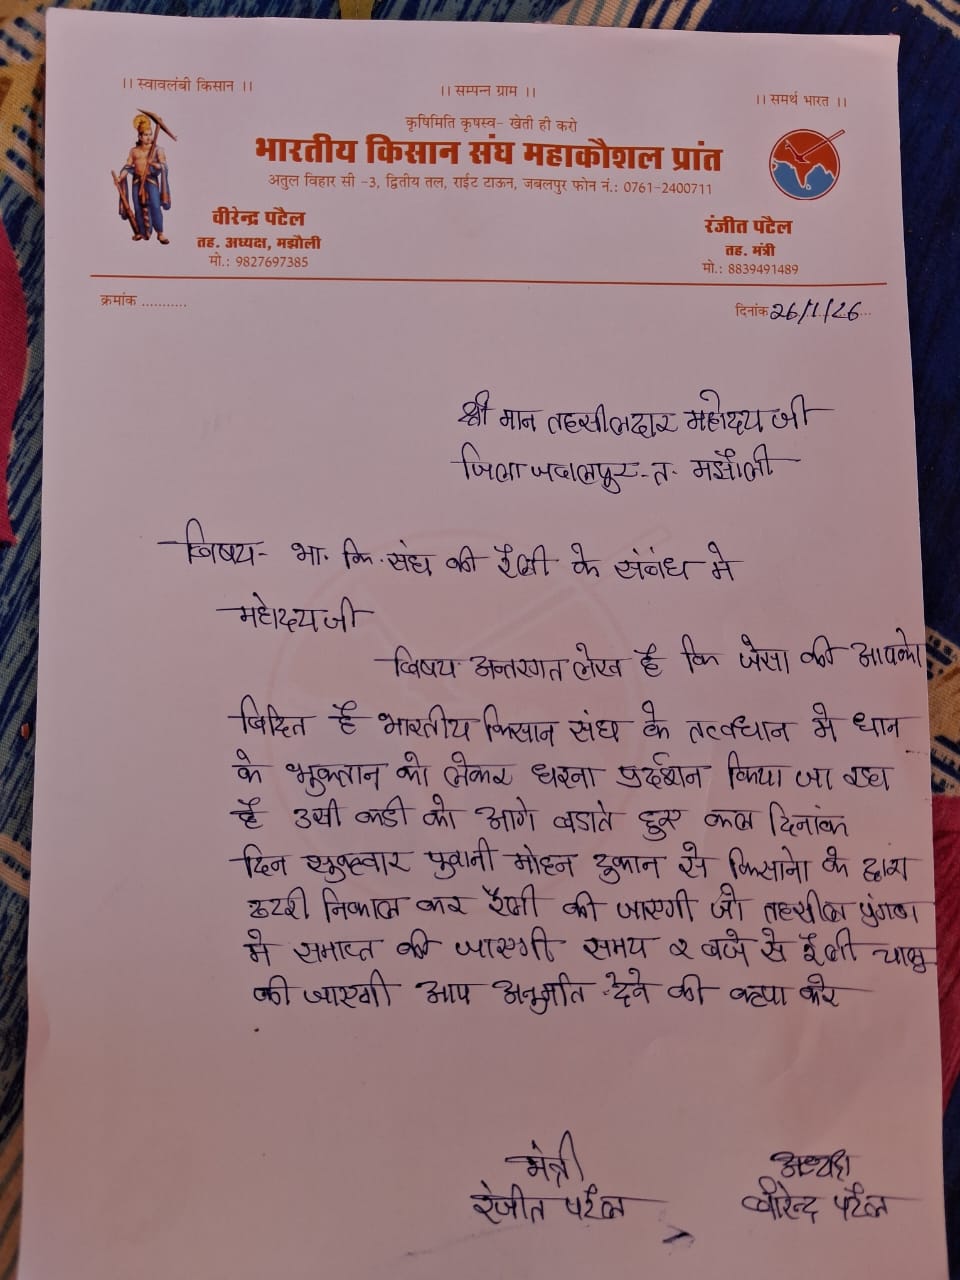 ।। स्वावलंबी किसान ।।
।। सम्पन्न ग्राम ।।
।। समर्थ भारत ।।
कृषिमिति कृषस्व- खेती ही करो
भारतीय किसान संघ महाकौशल प्रांत
अतुल विहार सी -3, द्वितीय तल, राईट टाऊन, जबलपुर फोन नं.: 0761-2400711
वीरेन्द्र पटैल
तह. अध्यक्ष, मझौली
मो.: 9827697385
रंजीत पटैल
तह. मंत्री
मो.: 8839491489
क्रमांक ...........
दिनांक 26/1/26
श्री मान तहसीलदार महोदय जी
जिला जबलपुर - त. मझौली
विषय- भा. कि. संघ की रैली के संबंध मे
महोदय जी
विषय अन्तरगत लेख है कि जेसा की आपको
विदित है भारतीय किसान संघ के तत्वधान मे धान
के भुकतान को लेकर धरना प्रर्दशन किया जा रहा
है उसी कडी को आगे बडाते हुए कल दिनांक
दिन शुक्रवार पुरानी मोहन दुकान से किसानो के द्वारा
निकाल कर रैली की जाएगी जो तहसील प्रंगण
मे समाप्त की जाएगी समय २ बजे से रैली चालु
की जाएगी आप अनुमति देने की कृपा करे
मंत्री
रंजीत पटैल
अध्यक्ष
वीरेन्द्र पटैल